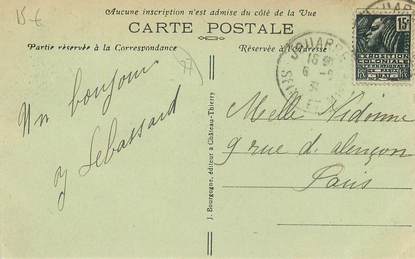 15 €
Aucune inscription n'est admise du côté de la Vue
CARTE POSTALE
Partie réservée à la Correspondance
Réservé à l'Adresse
15c
EXPOSITION
COLONIALE
INTERNATIONALE
PARIS 1931
Un bonjour
J. Bourgogne, éditeur à Château-Thierry
Melle
9 rue d. alençon
Paris